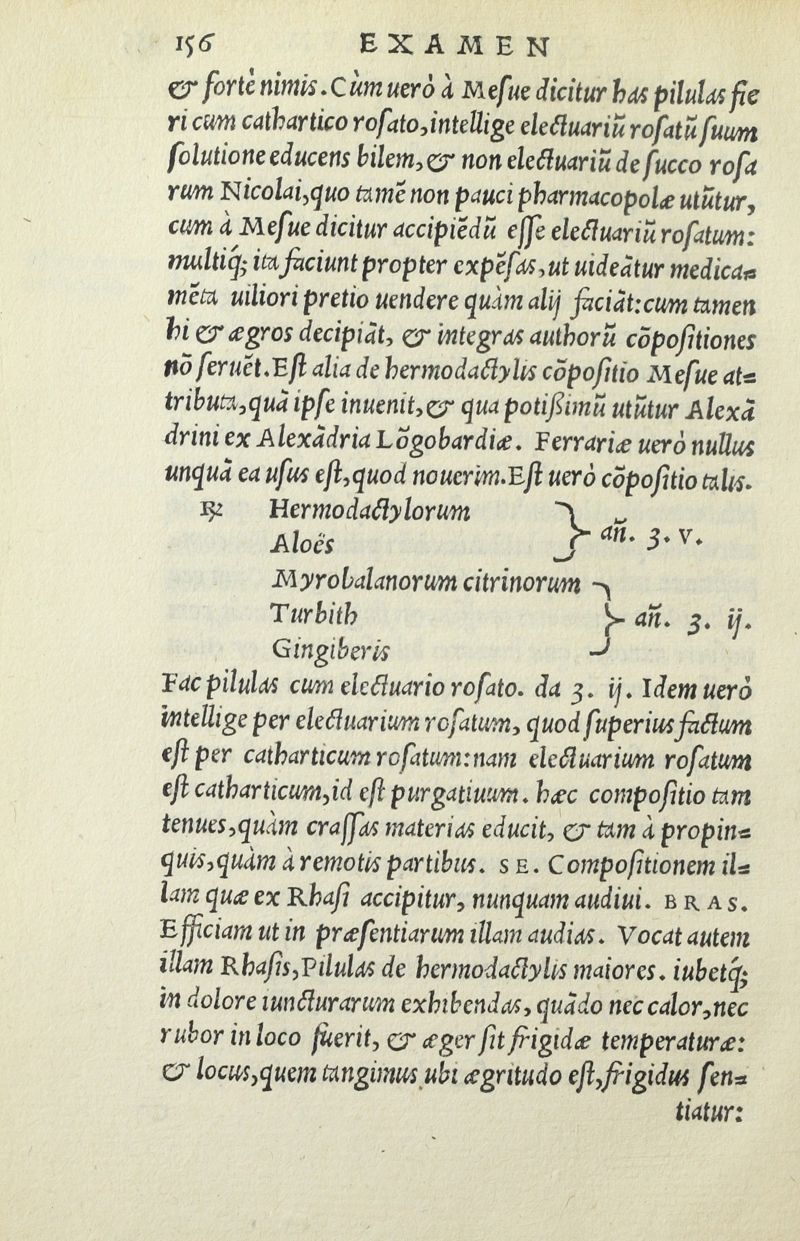 156 EXAMEN
& fortè nimis. Cùm uerò à Mesue dicitur has pilulas fie
ri cum cathartico rosato, intellige electuariũ rosatũ suum
solutione educens bilem, & non electuariũ de succo rosa
rum Nicolai, quo tamẽ non pauci pharmacopolæ utũtur,
cum à Mesue dicitur accipiẽdũ esse electuariũ rosatum:
multiq́; ita faciunt propter expẽsas, ut uideãtur medica=
mẽta uiliori pretio uendere quàm alij faciãt: cum tamen
hi & ægros decipiãt, & integras authorũ cõpositiones
nõ seruẽt. Est alia de hermodactylis cõpositio Mesue at=
tributa, quã ipse inuenit, & qua potißimũ utũtur Alexã
drini ex Alexãdria Lõgobardiæ. Ferrariæ uerò nullus
unquã ea usus est, quod nouerim. Est uerò cõpositio talis.
℞ Hermodactylorum
Aloës } añ. ʒ. v.
Myrobalanorum citrinorum
Turbith } añ. ʒ. ij.
Gingiberis
Fac pilulas cum electuario rosato. da ʒ. ij. Idem uerò
intellige per electuarium rosatum, quod superius factum
est per catharticum rosatum: nam electuarium rosatum
est catharticum, id est purgatiuum. hæc compositio tam
tenues, quàm crassas materias educit, & tam à propin=
quis, quàm à remotis partibus. SE. Compositionem il=
lam quæ ex Rhasi accipitur, nunquam audiui. BRAS.
Efficiam ut in præsentiarum illam audias. Vocat autem
illam Rhasis, Pilulas de hermodactylis maiores. iubetq́;
in dolore iuncturarum exhibendas, quãdo nec calor, nec
rubor in loco fuerit, & æger sit frigidæ temperaturæ:
& locus, quem tangimus ubi ægritudo est, frigidus sen=
tiatur: